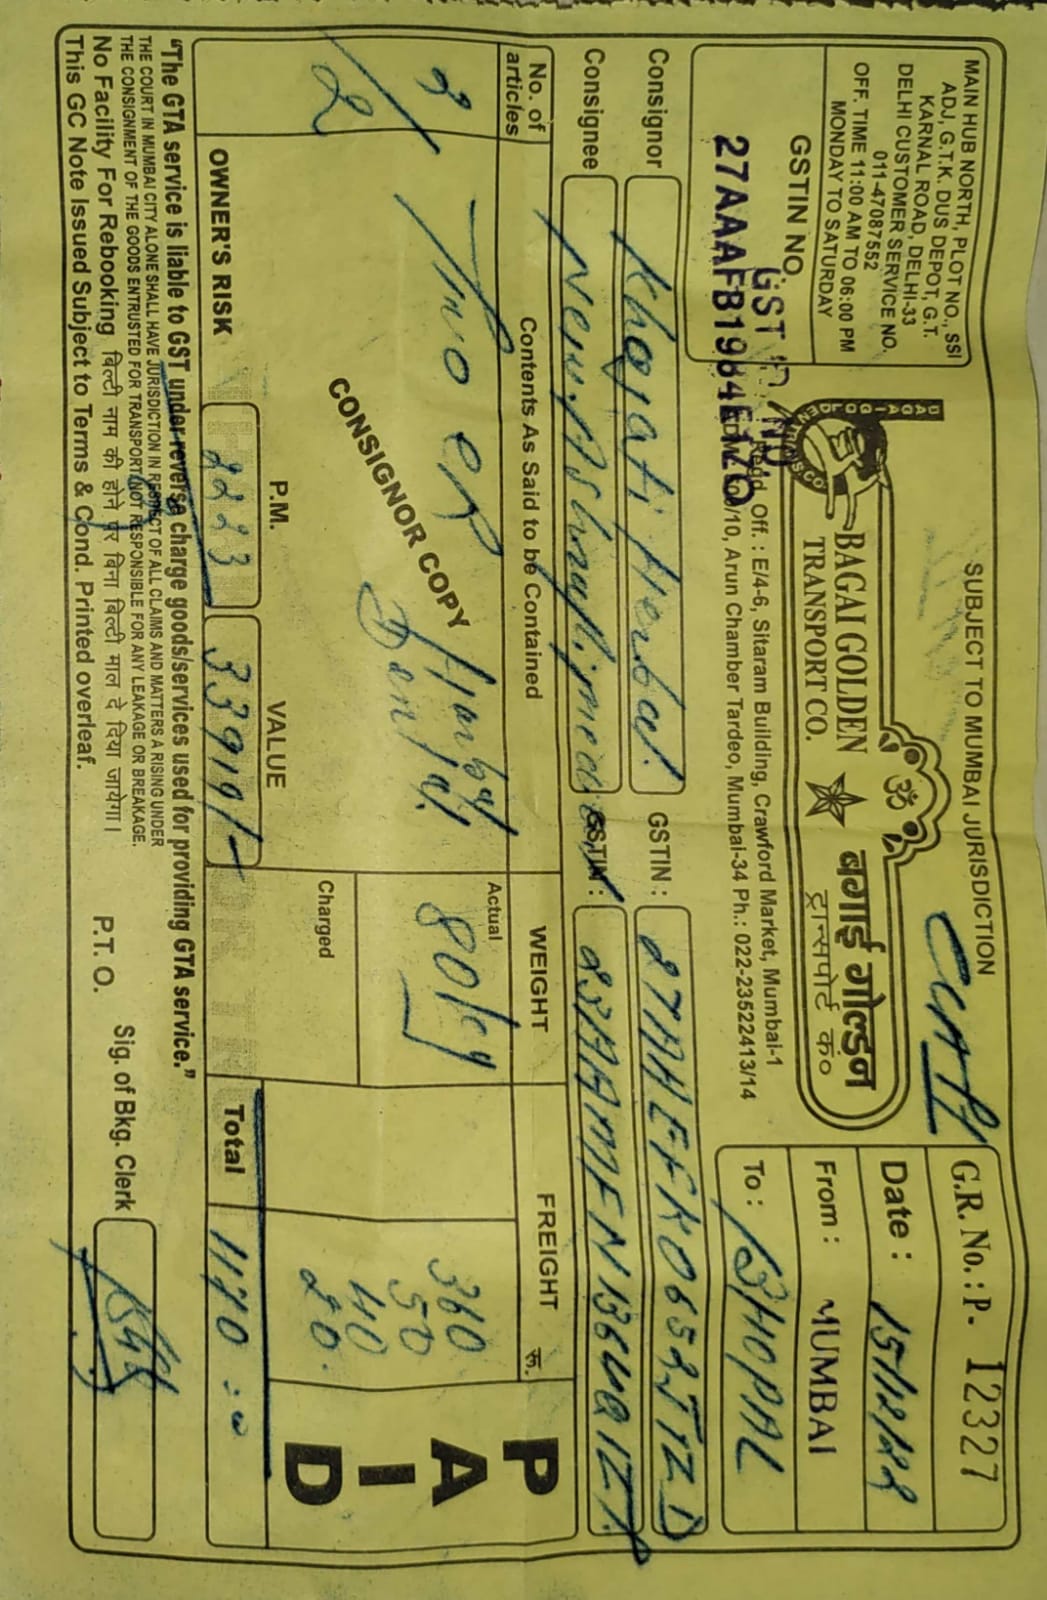 SUBJECT TO MUMBAI JURISDICTION
MAIN HUB NORTH, PLOT NO., SSI
ADJ, G.T.K. DUS DEPOT, G.T.
KARNAL ROAD, DELHI-33
DELHI CUSTOMER SERVICE NO.
011-47087552
OFF. TIME 11:00 AM TO 06:00 PM
MONDAY TO SATURDAY
GSTIN NO.
GST
27AAAFB1984E126
ॐ
BAGAI GOLDEN
TRANSPORT CO.
बगाई गोल्डन
ट्रान्सपोर्ट कं०
Regd Off. : E/4-6, Sitaram Building, Crawford Market, Mumbai-1
10, Arun Chamber Tardeo, Mumbai-34 Ph.: 022-23522413/14
G.R. No.: P. 12327
Date : 15/12/22
From : MUMBAI
To : BHOPAL
Consignor Khojati Herbal GSTIN :
Consignee New GSTIN :
No. of articles
Contents As Said to be Contained
WEIGHT
FREIGHT रू.
2
2
Two
Herbal
Dental
CONSIGNOR COPY
Actual
80 kg
Charged
360
50
40
20
PAID
OWNER'S RISK
P.M.
223
VALUE
33919/-
Total 1170
"The GTA service is liable to GST under reverse charge goods/services used for providing GTA service."
THE COURT IN MUMBAI CITY ALONE SHALL HAVE JURISDICTION IN RESPECT OF ALL CLAIMS AND MATTERS A RISING UNDER
THE CONSIGNMENT OF THE GOODS ENTRUSTED FOR TRANSPORT NOT RESPONSIBLE FOR ANY LEAKAGE OR BREAKAGE.
No Facility For Rebooking बिल्टी नाम की होने पर बिना बिल्टी माल दे दिया जायेगा।
This GC Note Issued Subject to Terms & Cond. Printed overleaf.
P.T.O.
Sig. of Bkg. Clerk